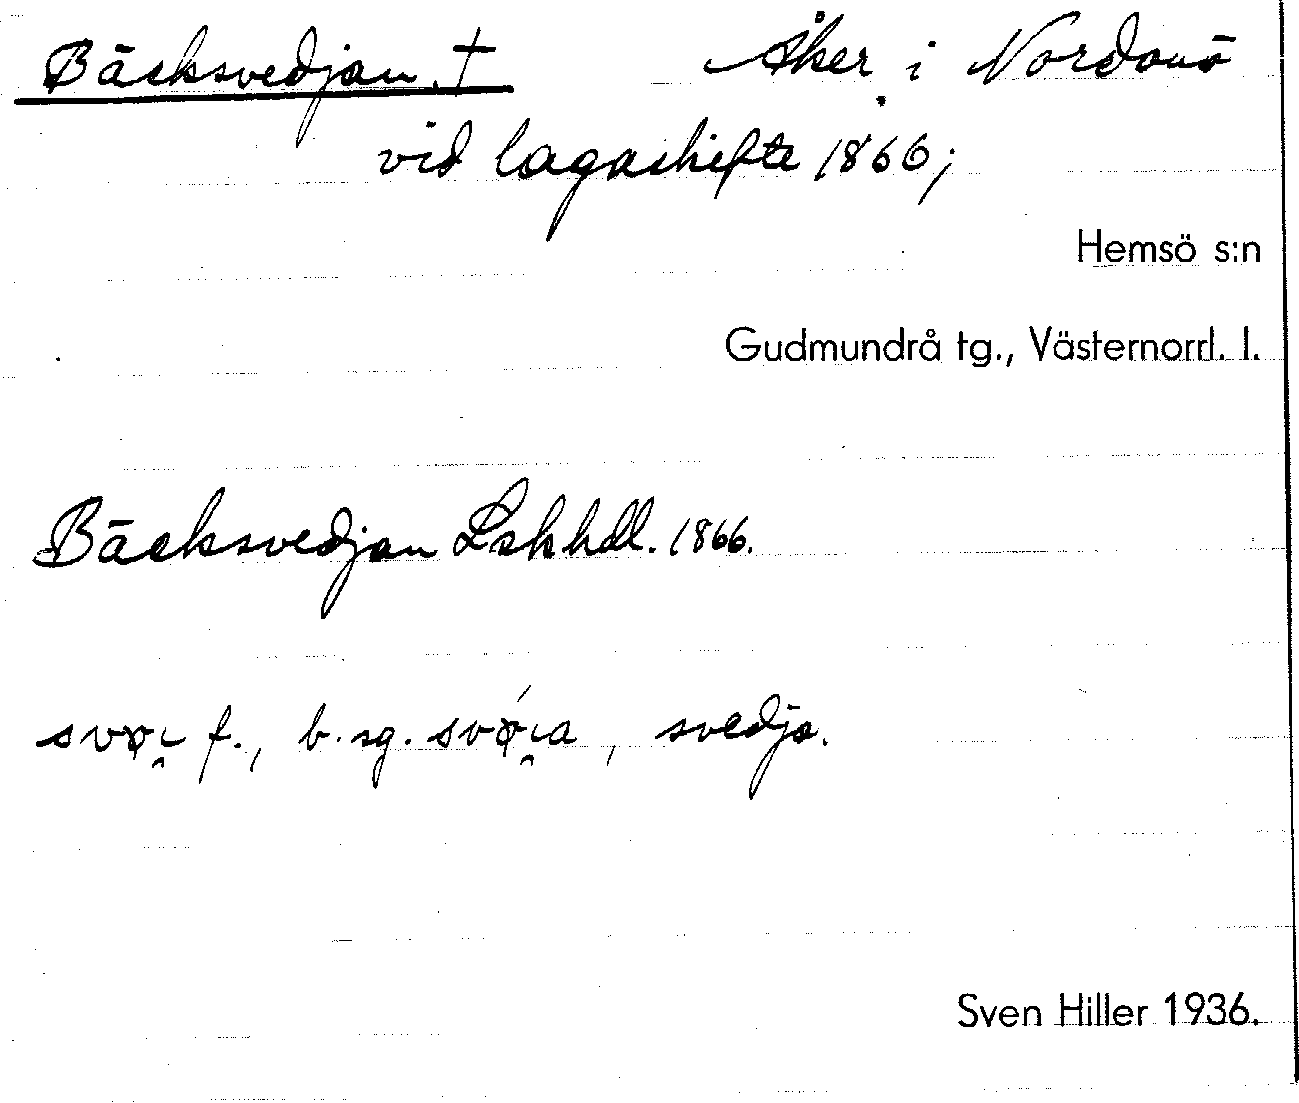 Bäcksvedjan. † Åker i Nordanö
vid lagaskifte 1866;
Hemsö s:n
Gudmundrå tg., Västernorrl. l.
Bäcksvedjan Lskhdl. 1866.
f., b. sg. , svedja.
Sven Hiller 1936.